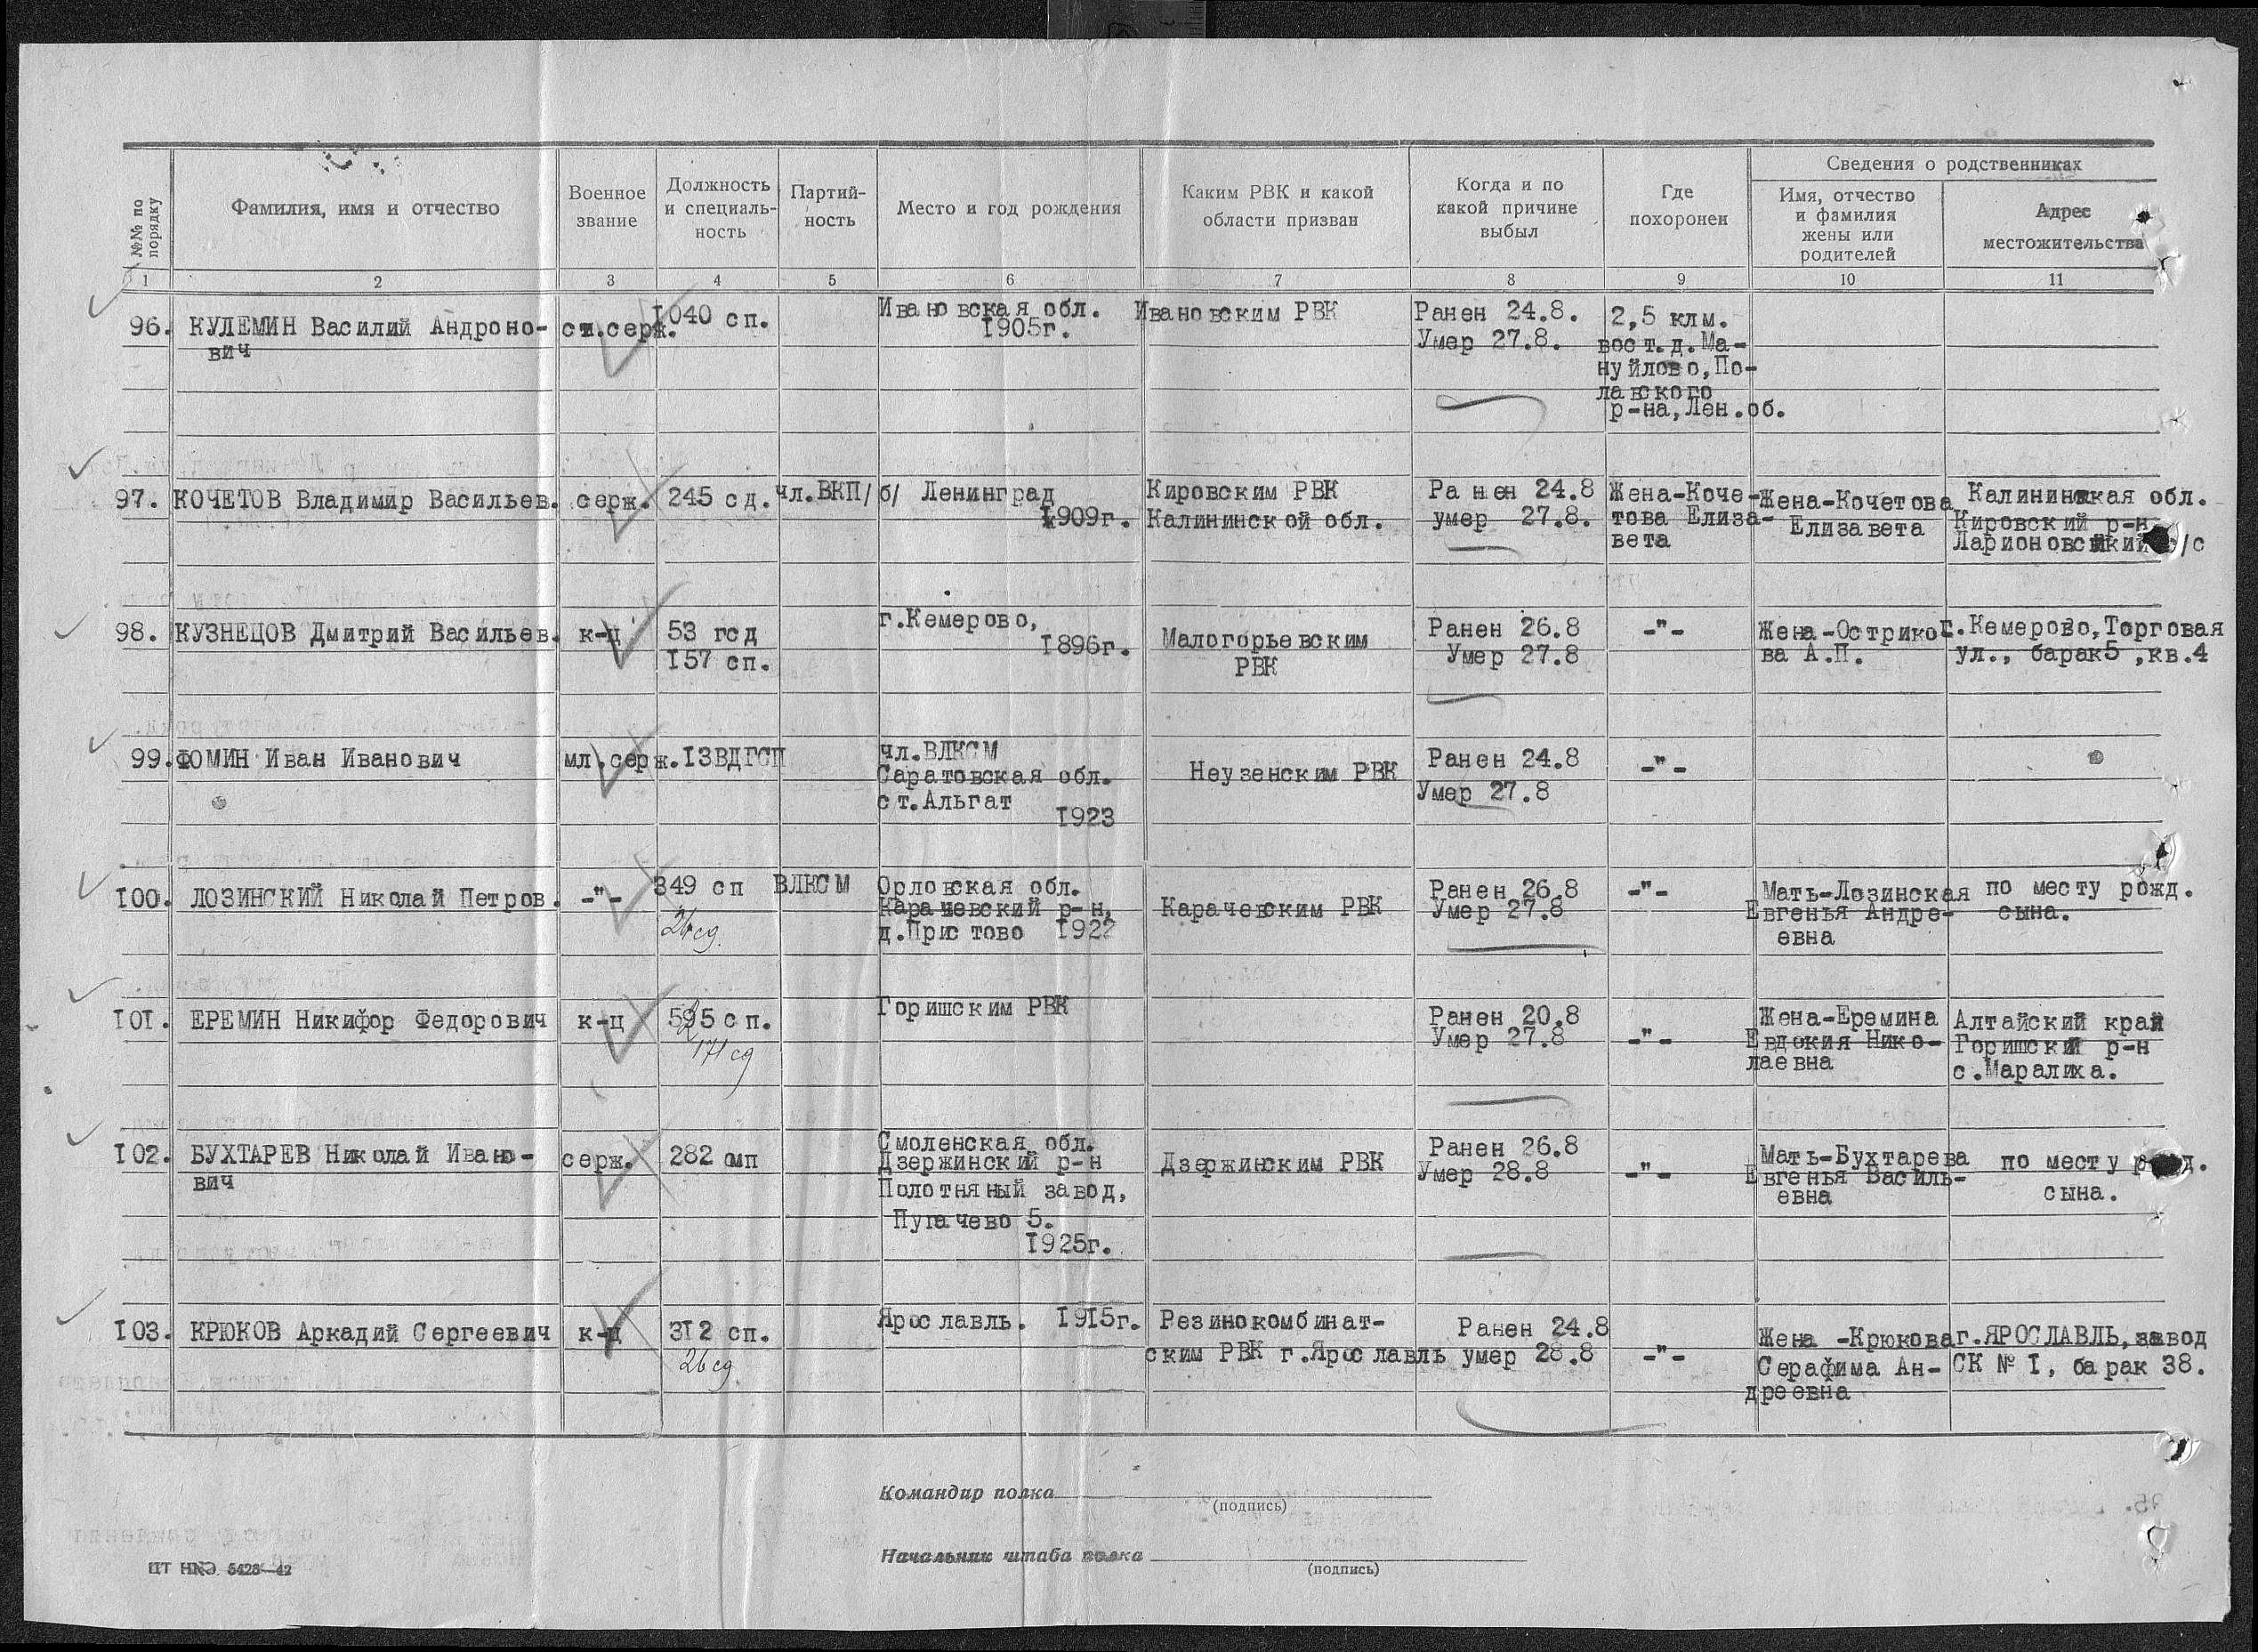 №№ по порядку
Фамилия, имя и отчество
Военное звание
Должность и специаль-
ность
Партий-
ность
Место и год рождения
Каким РВК и какой
области призван
Когда и по
какой причине
выбыл
Где
похоронен
Сведения о родственниках
Имя, отчество
и фамилия
жены или
родителей
Адрес
местожительства
1 2 3 4 5 6 7 8 9 10 11
96. КУЛЕМИН Василий Андроно-
вич
ст.серж.
1040 сп.
Ивановская обл.
1905г.
Ивановским РВК
Ранен 24.8.
Умер 27.8.
2,5 клм.
вост.д.Ма-
нуйлово,По-
лавского
р-на,Лен.об.
97. КОЧЕТОВ Владимир Васильев.
серж.
245 сд.
чл.ВКП/б/
Ленинград
1909г.
Кировским РВК
Калининской обл.
Ранен 24.8
умер 27.8.
Жена-Коче-
това Елиза-
вета
Жена-Кочетова
Елизавета
Калининская обл.
Кировский р-н
Ларионовский с/с
98. КУЗНЕЦОВ Дмитрий Васильев.
к-ц
53 гсд
157 сп.
г.Кемерово,
1896г.
Малогорьевским
РВК
Ранен 26.8
Умер 27.8
-"-
Жена-Острико
ва А.П.
г.Кемерово,Торговая
ул., барак5 ,кв.4
99. ФОМИН Иван Иванович
мл.серж.
13ВДГСП
чл.ВЛКСМ
Саратовская обл.
ст.Альгат
1923
Неузенским РВК
Ранен 24.8
Умер 27.8
-"-
100. ЛОЗИНСКИЙ Николай Петров.
-"-
349 сп
26сд.
ВЛКСМ
Орловская обл.
Карачевский р-н,
д.Пристово 1922
Карачевским РВК
Ранен 26.8
Умер 27.8
-"-
Мать-Лозинская
Евгенья Андре-
евна
по месту рожд.
сына.
101. ЕРЕМИН Никифор Федорович
к-ц
сп.
171сд
Горишским РВК
Ранен 20.8
Умер 27.8
-"-
Жена-Еремина
Евдокия Нико-
лаевна
Алтайский край
Горишский р-н
с.Маралиха.
102. БУХТАРЕВ Николай Ивано-
вич
серж.
282 омп
Смоленская обл.
Дзержинский р-н
Полотняный завод,
Пугачево 5.
1925г.
Дзержинским РВК
Ранен 26.8
Умер 28.8
-"-
Мать-Бухтарева
Евгенья Василь-
евна
по месту
сына.
103. КРЮКОВ Аркадий Сергеевич
к-ц
312 сп.
26сд.
Ярославль. 1915г.
Резинокомбинат-
ским РВК г.Ярославль
Ранен 24.8
умер 28.8
-"-
Жена -Крюкова
Серафима Ан-
дреевна
г.ЯРОСЛАВЛЬ,завод
СК № 1, барак 38.
Командир полка
(подпись)
Начальник штаба полка
(подпись)
ЦТ НКО 5428—42